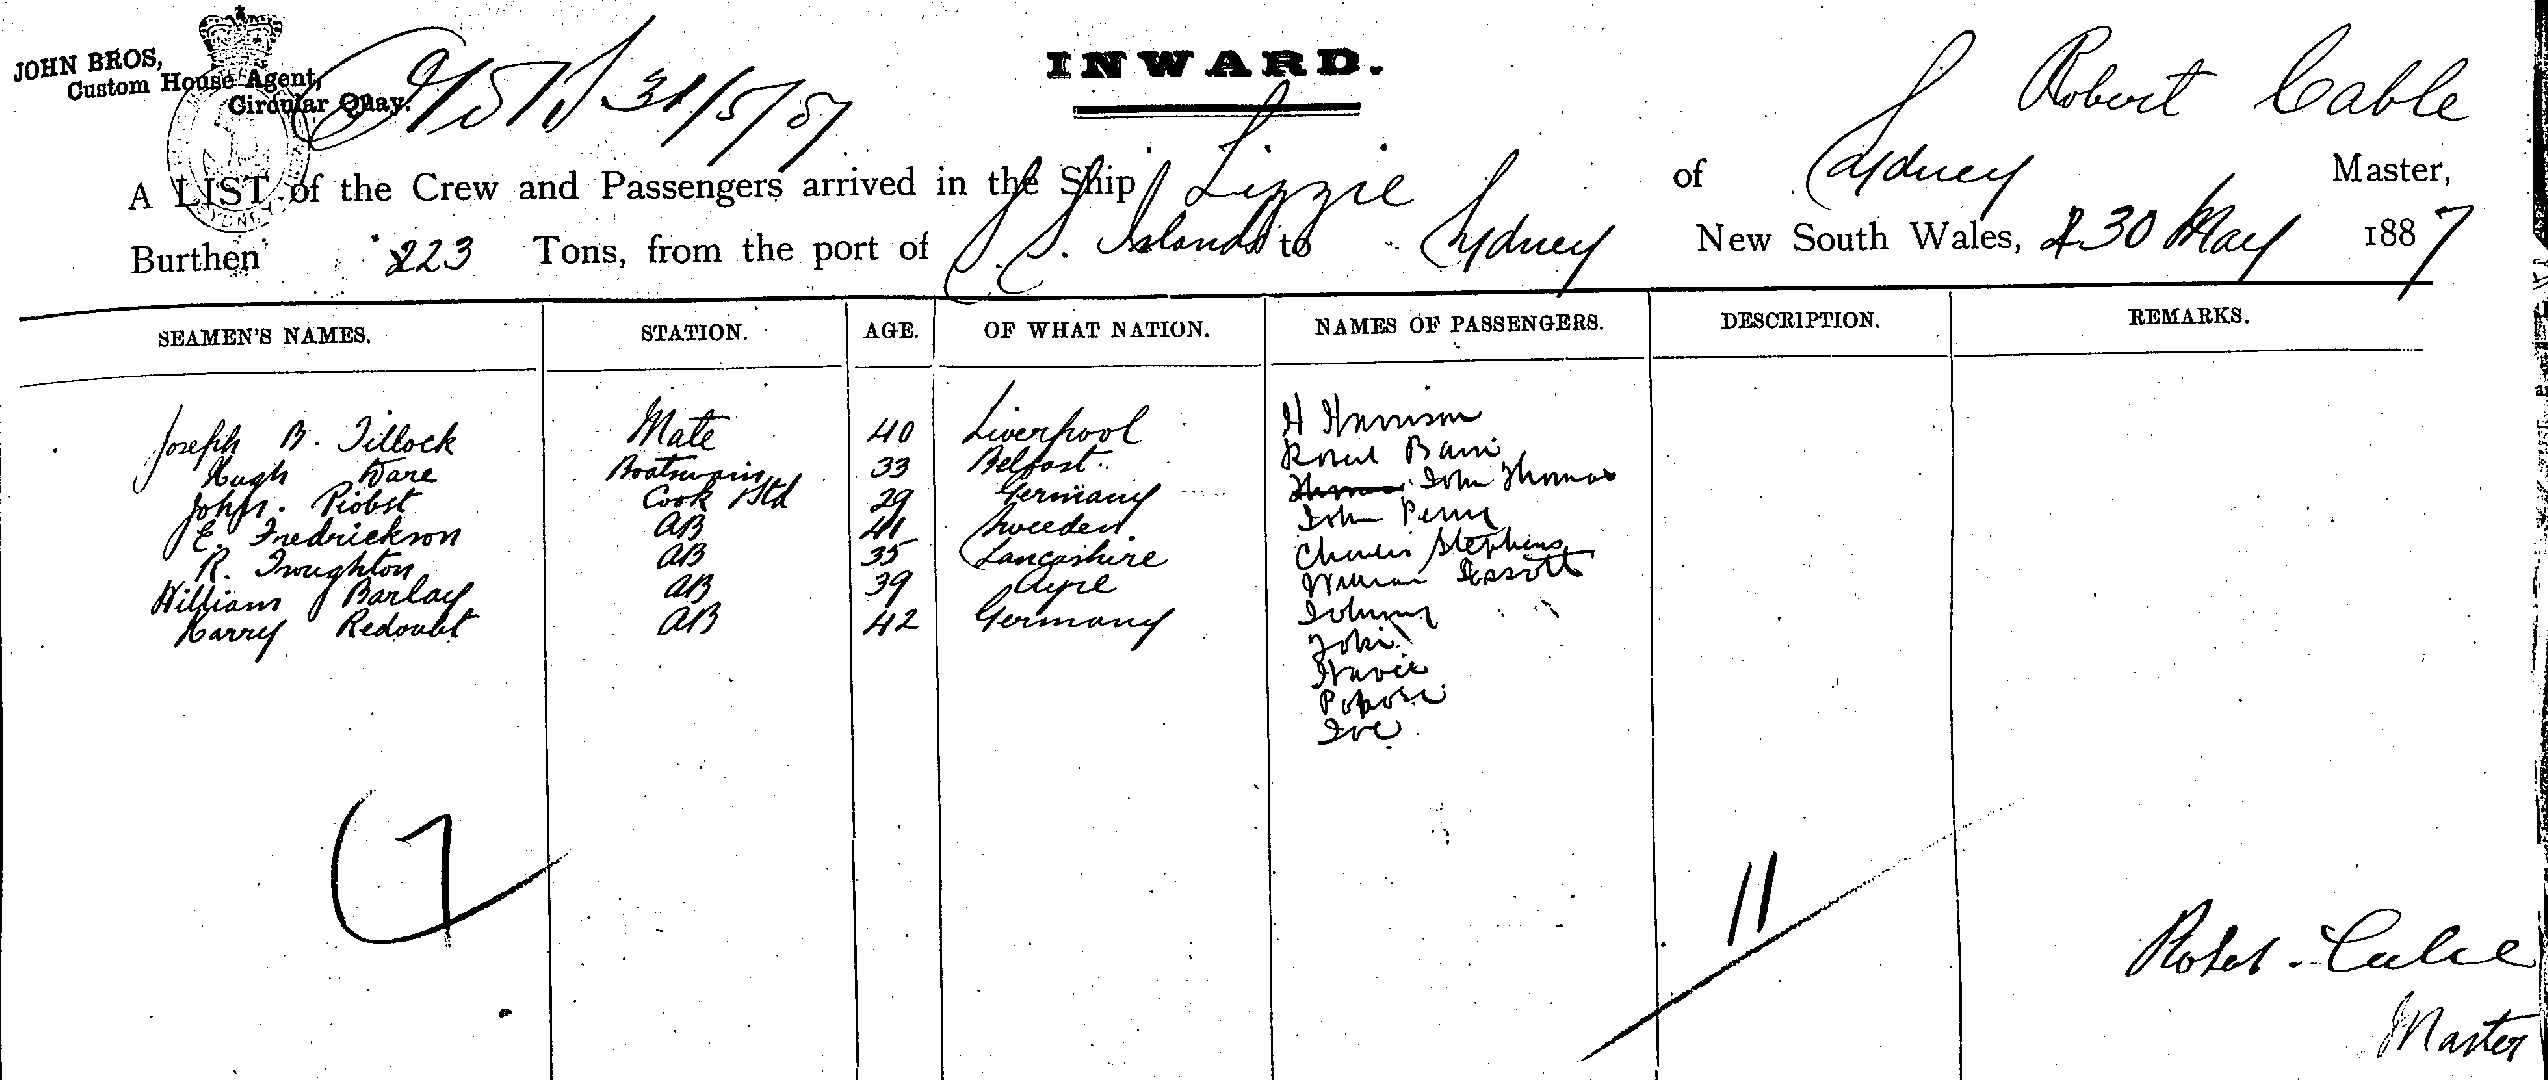 JOHN BROS,
Custom House Agent,
Circular Quay.
31/5/87
INWARD.
Robert Cable
A LIST of the Crew and Passengers arrived in the Ship Lizzie of Sydney Master,
Burthen 223 Tons, from the port of S. S. Islands to Sydney New South Wales, 30 May 1887
SEAMEN'S NAMES. STATION. AGE. OF WHAT NATION. NAMES OF PASSENGERS. DESCRIPTION. REMARKS.
Joseph B. Tillock Mate 40 Liverpool H Harrison
Hugh Dare Boatswain 33 Belfast Robert
John Piobst Cook & Std 29 Germany John Thomas
E. Fredrickson AB 41 Sweeden John Perry
R. Troughton AB 35 Lancashire Charles Stephens
William Barlay AB 39 Ayre William
Harry Redoubt AB 42 Germany Johnny
Joe
7
11
Robert Cable
Master